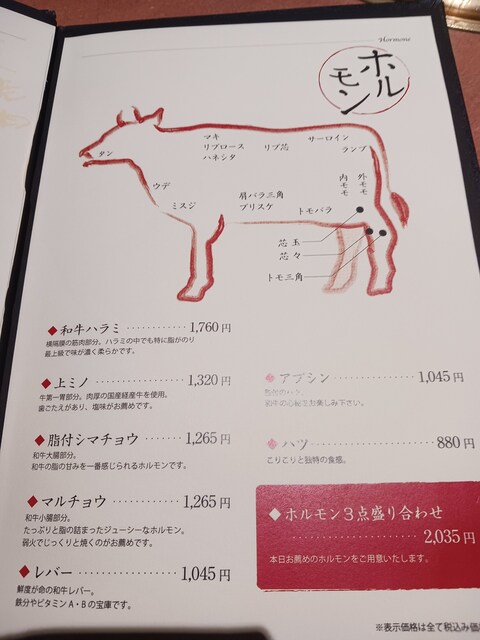 Hormone
ホルモン
タン
マキ
リブロース
ハネシタ
リブ芯
サーロイン
ランプ
ウデ
ミスジ
肩バラ三角
ブリスケ
トモバラ
内モモ
外モモ
芯玉
芯々
トモ三角
◆和牛ハラミ ............ 1,760円
横隔膜の筋肉部分。ハラミの中でも特に脂がのり
最上級で味が濃く柔らかです。
◆上ミノ ............ 1,320円
牛第一胃部分。肉厚の国産経産牛を使用。
歯ごたえがあり、塩味がお薦めです。
◆脂付シマチョウ ....... 1,265円
和牛大腸部分。
和牛の脂の甘みを一番感じられるホルモンです。
◆マルチョウ ............ 1,265円
和牛小腸部分。
たっぷりと脂の詰まったジューシーなホルモン。
弱火でじっくりと焼くのがお薦めです。
◆レバー ............ 1,045円
鮮度が命の和牛レバー。
鉄分やビタミンA・Bの宝庫です。
◆アブシン ............ 1,045円
お楽しみ下さい。
◆ハツ ............ 880円
こりこりと独特の食感。
◆ホルモン3点盛り合わせ
............ 2,035円
本日お薦めのホルモンをご用意いたします。
※表示価格は全て税込み価